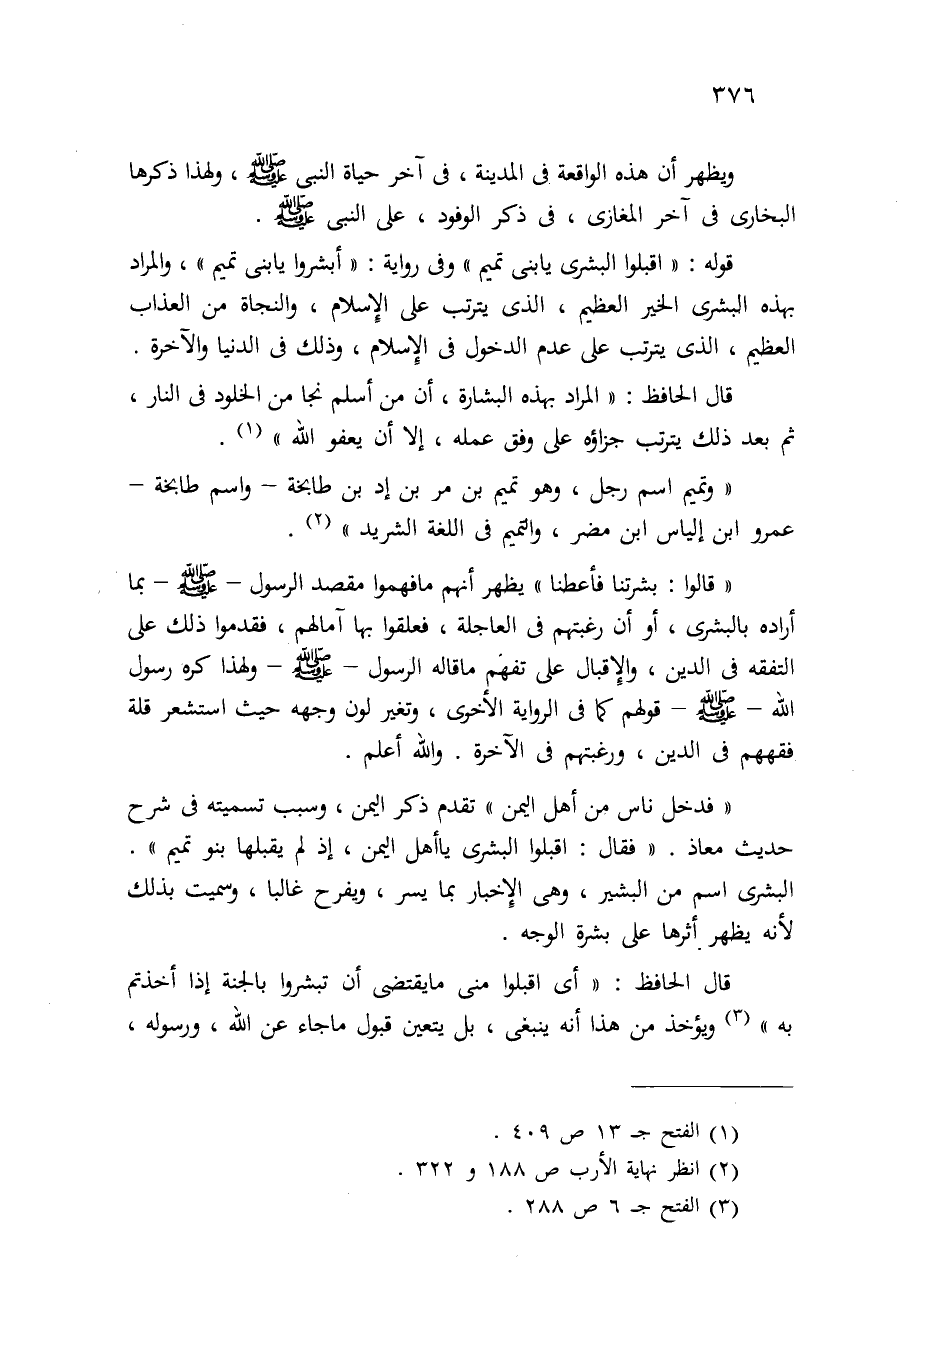 ٣٧٦
ويظهر أن هذه الواقعة فى المدينة ، فى آخر حياة النبى ﷺ ، ولهذا ذكرها
البخارى فى آخر المغازى ، فى ذكر الوفود ، على النبى ﷺ .
قوله : « اقبلوا البشرى يابنى تميم » وفى رواية : « أبشروا يابنى تميم » ، والمراد
بهذه البشرى الخير العظيم ، الذى يترتب على الإسلام ، والنجاة من العذاب
العظيم ، الذى يترتب على عدم الدخول فى الإسلام ، وذلك فى الدنيا والآخرة .
قال الحافظ : « المراد بهذه البشارة ، أن من أسلم نجا من الخلود فى النار ،
ثم بعد ذلك يترتب جزاؤه على وفق عمله ، إلا أن يعفو الله » (١) .
« وتميم اسم رجل ، وهو تميم بن مر بن إد بن طابخة – واسم طابخة –
عمرو ابن إلياس ابن مضر ، والتميم فى اللغة الشريد » (٢) .
« قالوا : بشرتنا فأعطنا » يظهر أنهم مافهموا مقصد الرسول – ﷺ – بما
أراده بالبشرى ، أو أن رغبتهم فى العاجلة ، فعلقوا بها آمالهم ، فقدموا ذلك على
التفقه فى الدين ، والإقبال على تفهّم ماقاله الرسول – ﷺ – ولهذا كره رسول
الله – ﷺ – قولهم كما فى الرواية الأخرى ، وتغير لون وجهه حيث استشعر قلة
فقههم فى الدين ، ورغبتهم فى الآخرة . والله أعلم .
« فدخل ناس من أهل اليمن » تقدم ذكر اليمن ، وسبب تسميته فى شرح
حديث معاذ . « فقال : اقبلوا البشرى ياأهل اليمن ، إذ لم يقبلها بنو تميم » .
البشرى اسم من البشير ، وهى الإخبار بما يسر ، ويفرح غالبا ، وسميت بذلك
لأنه يظهر أثرها على بشرة الوجه .
قال الحافظ : « أى اقبلوا منى مايقتضى أن تبشروا بالجنة إذا أخذتم
به » (٣) ويؤخذ من هذا أنه ينبغى ، بل يتعين قبول ماجاء عن الله ، ورسوله ،
(١) الفتح جـ ١٣ ص ٤٠٩ .
(٢) انظر نهاية الأرب ص ١٨٨ و ٣٢٢ .
(٣) الفتح جـ ٦ ص ٢٨٨ .